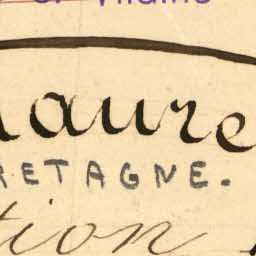 et Vilaine
aure
RETAGNE.
tion